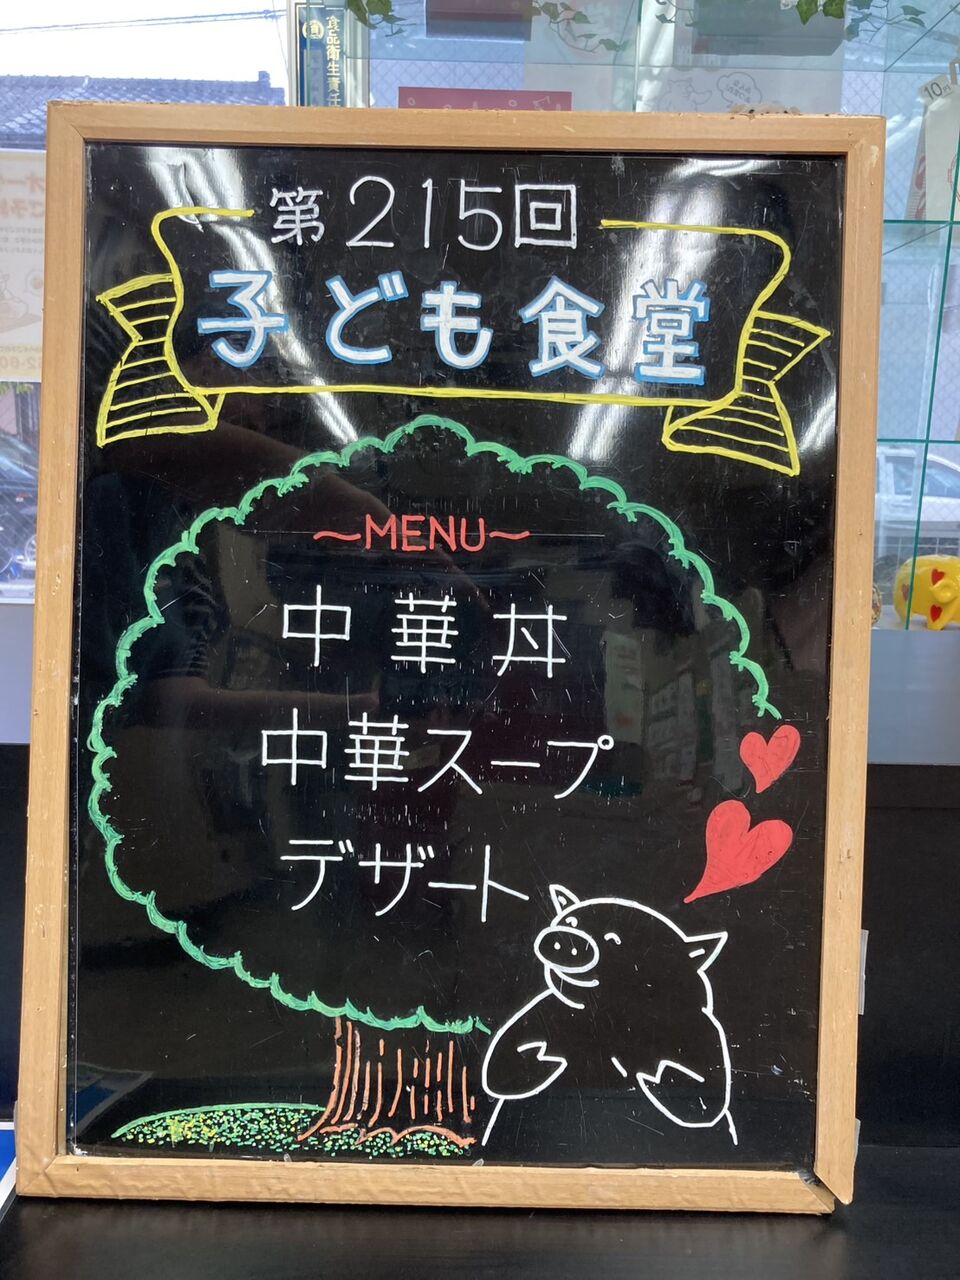 食品衛生責任
10円
第215回
子ども食堂
〜MENU〜
中華丼
中華スープ
デザート